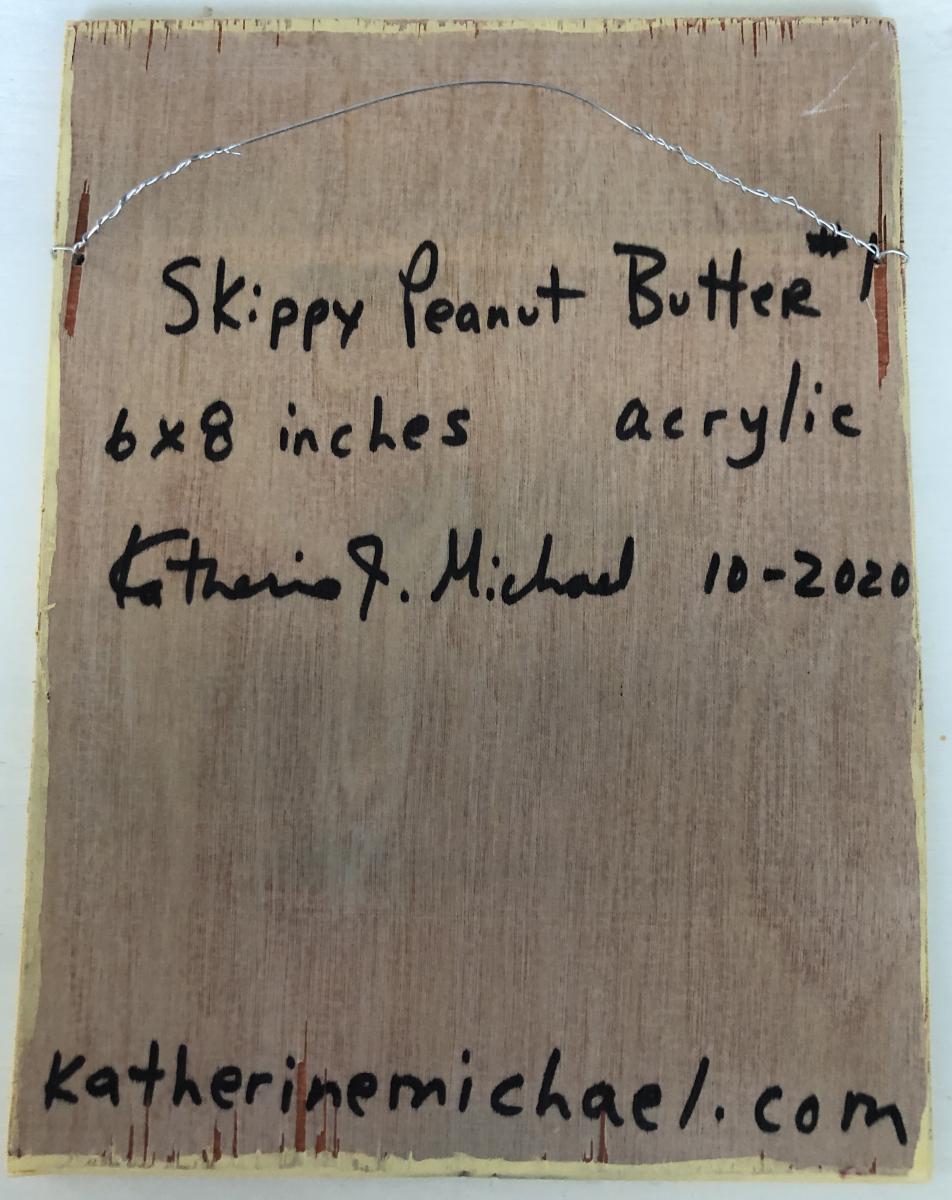 Skippy Peanut Butter #1
6x8 inches acrylic
Katherine J. Michael 10-2020
katherinemichael.com